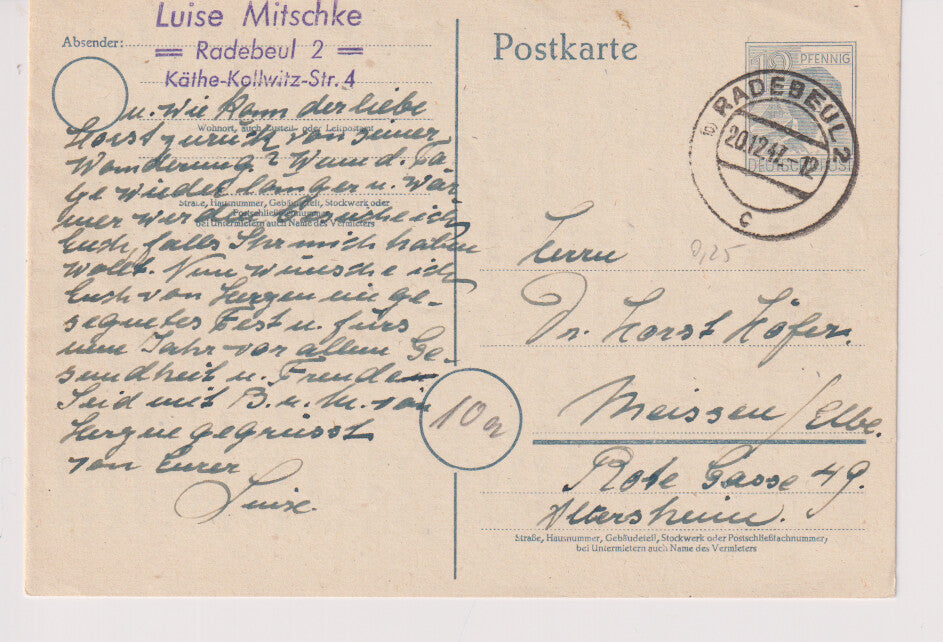 Luise Mitschke
Absender:
= Radebeul 2 =
Käthe-Kollwitz-Str. 4
u. wie kam der liebe
Horst zurück von seiner
Wohnort, auch Zustell- oder Leitpostamt
Wanderung? Wenn d. Ta
ge wieder länger u. wär
Straße, Hausnummer, Gebäudeteil, Stockwerk oder
Postschließfachnummer,
mer werden, besuche ich
bei Untermietern auch Name des Vermieters
Euch, falls Ihr mich haben
wollt. Nun wünsche ich
Euch von Herzen ein ge-
segnetes Fest u. fürs
neue Jahr vor allem Ge-
sundheit u. Freude
Seid mit B. u. M. von
Herzen gegrüsst
von Eurer
Luise.
Postkarte
12 PFENNIG
DEUTSCHE POST
(10) RADEBEUL 2
20.12.47.-12
c
0,25
Herrn
Dr. Horst Höfer.
10a
Meissen/Elbe.
Rote Gasse 49.
Altersheim.
Straße, Hausnummer, Gebäudeteil, Stockwerk oder Postschließfachnummer;
bei Untermietern auch Name des Vermieters